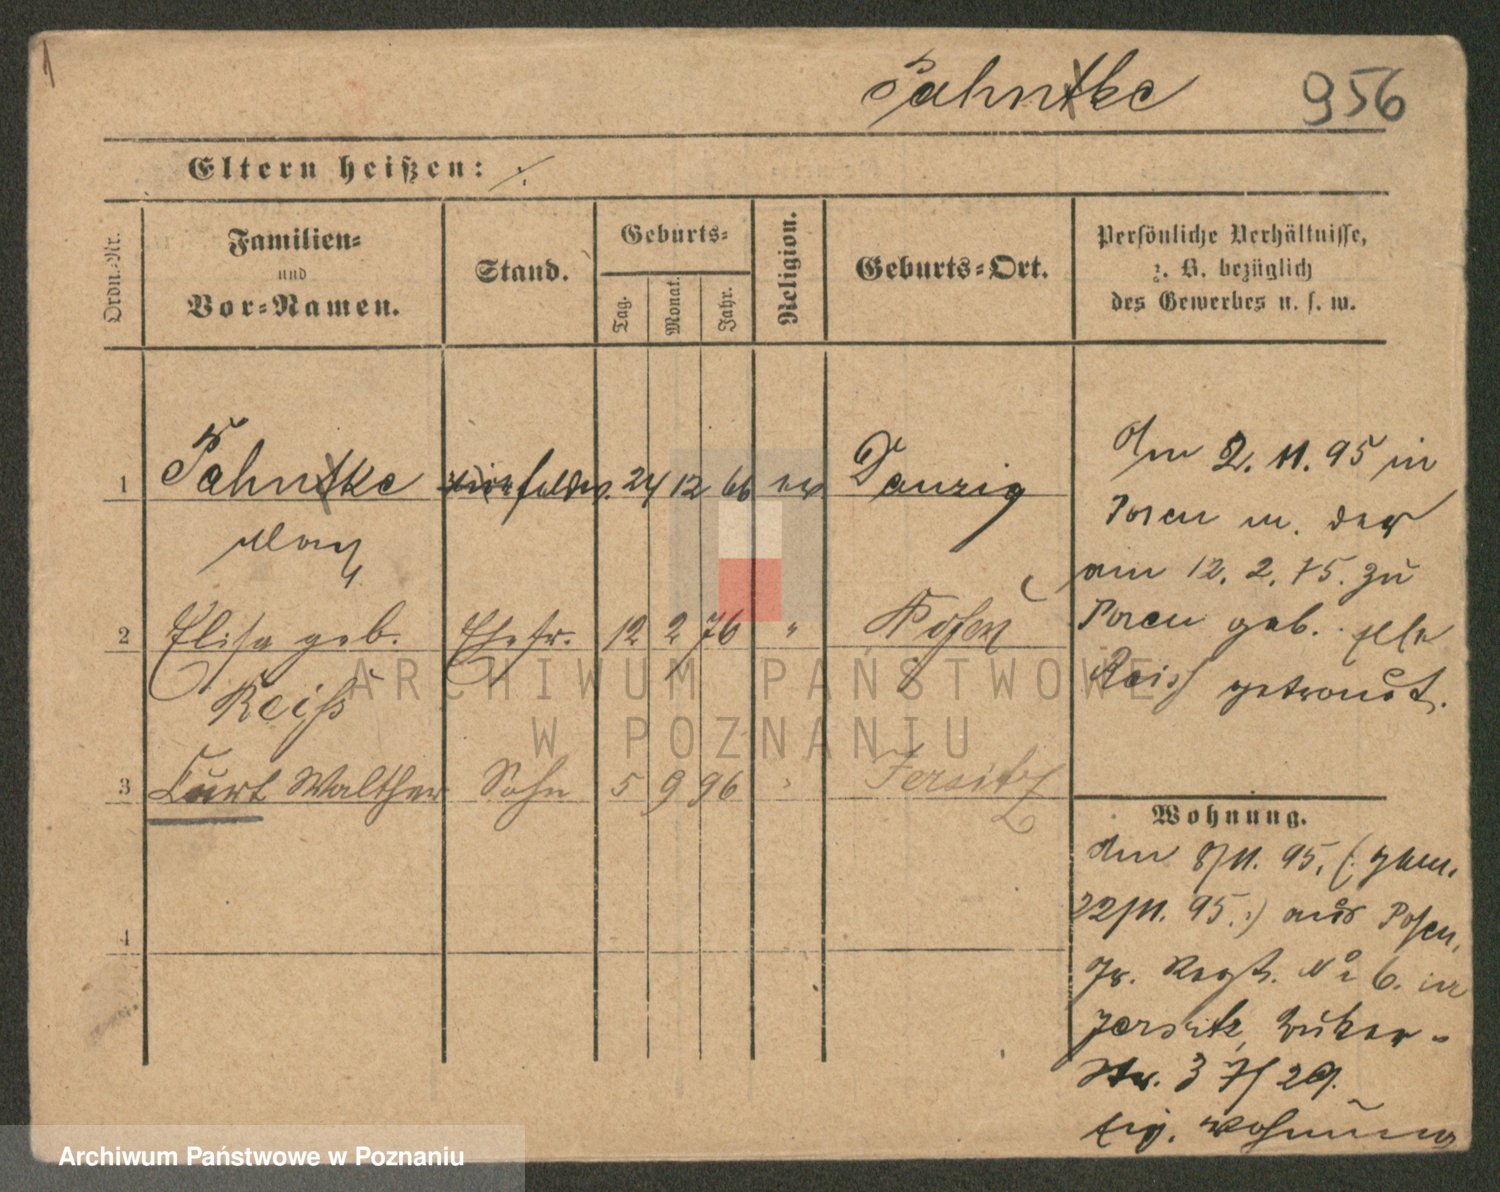 1
Pahntke 956
Eltern heißen: ./.
Ordn.-Nr.
Familien-
und
Vor-Namen.
Stand.
Geburts-
Tag.
Monat.
Jahr.
Religion.
Geburts-Ort.
Persönliche Verhältnisse,
z. B. bezüglich
des Gewerbes u. s. w.
1 Pahntke 24 12 66 ev Danzig
Max
2 Elisa geb. Ehefr. 12 2 76 " Posen
Reiß
3 Curt Walther Sohn 5 9 96 " Jersitz
4
Am 2. 11. 95 in
Posen m. der
am 12. 2. 75. zu
Posen geb. Else
Reiß getraut.
Wohnung.
den 8/11. 95. (: gem.
22/11. 95. :) aus Posen,
Gr. Regt. No 6. in
Jersitz,
Str. 3 7/29.
eig. Wohnung
ARCHIWUM PAŃSTWOWE
W POZNANIU
Archiwum Państwowe w Poznaniu